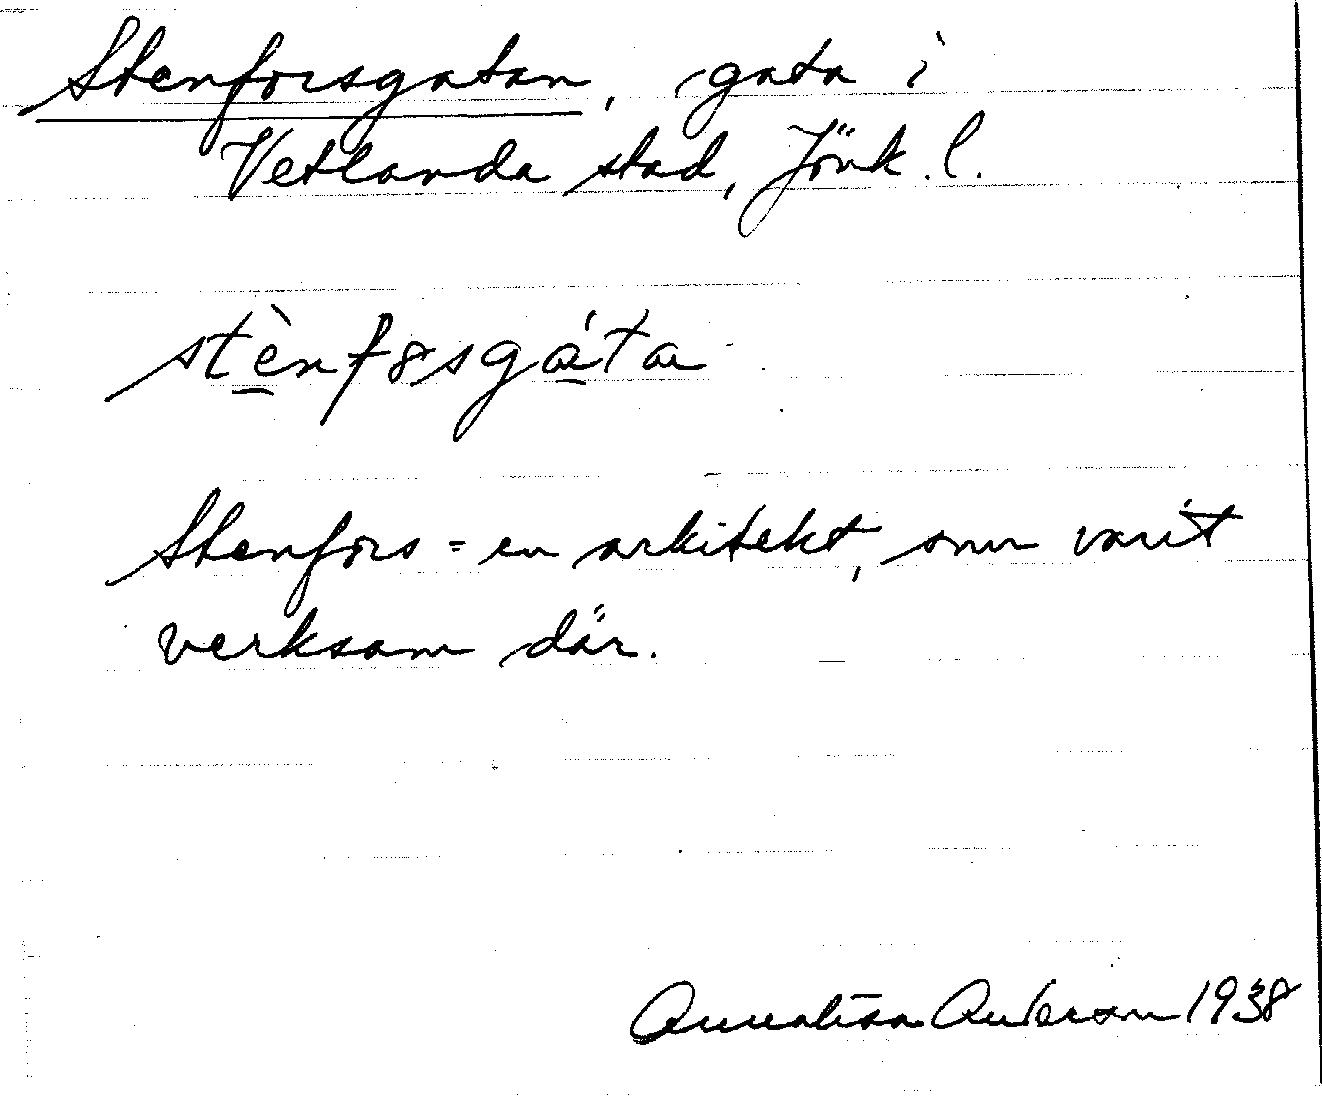 Stenforsgatan, gata i
Vetlanda stad, Jönk. l.
stènf8sgáta
Stenfors = en arkitekt, som varit
verksam där.
Annalisa Anderson 1938